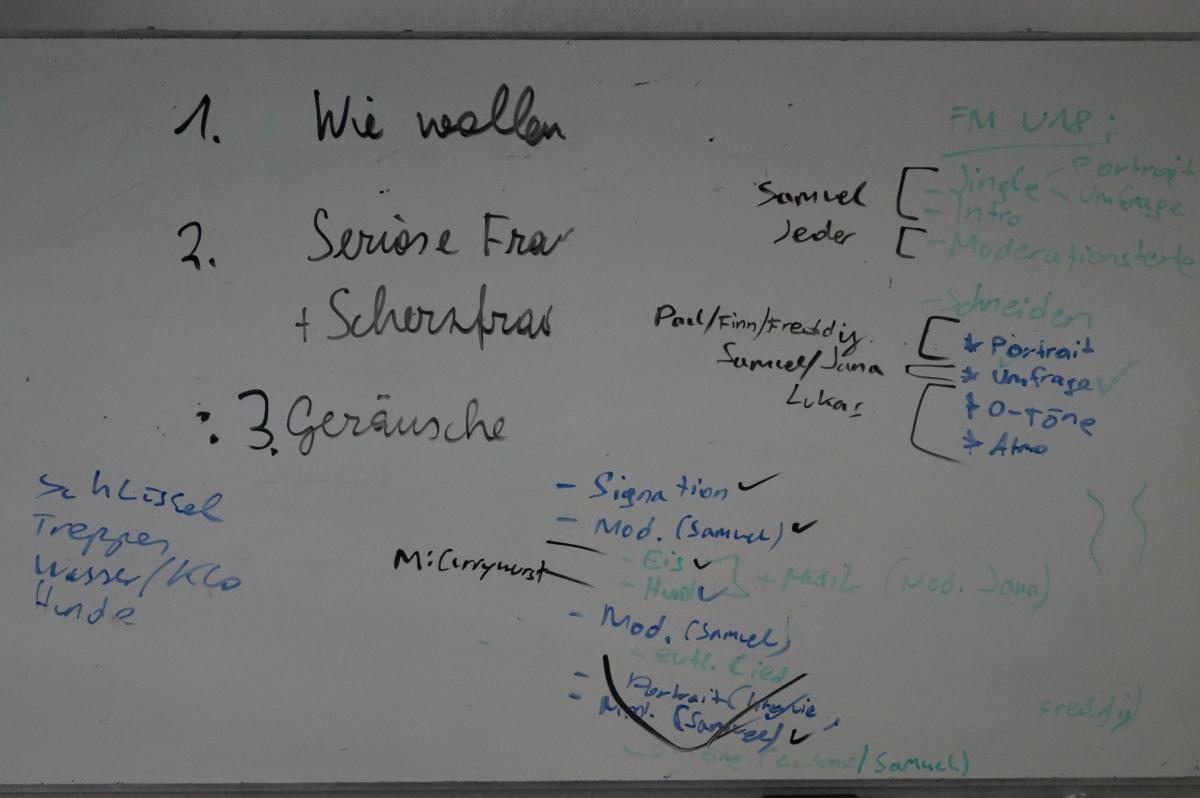 1. Wie wollen
2. Seriöse Fra
+ Scherzfrag
: 3. Geräusche
Schlüssel
Treppen
Wasser/Klo
Hunde
FM U18:
Samuel
- Jingle
Portrait
Umfrage
- Intro
Jeder
- Moderationstexte
- Schneiden
Paul/Finn/Freddy
* Portrait
Samuel/Jana
* Umfrage ✓
Lukas
* O-Töne
* Atmo
- Signation ✓
- Mod. (Samuel) ✓
M: Currywurst
- Eis ✓
- Hund ✓
+ Musik (Mod. Jana)
- Mod. (Samuel)
- evtl. Lied
- Portrait
- Mod. (Samuel) ✓
Freddy)
/Samuel)